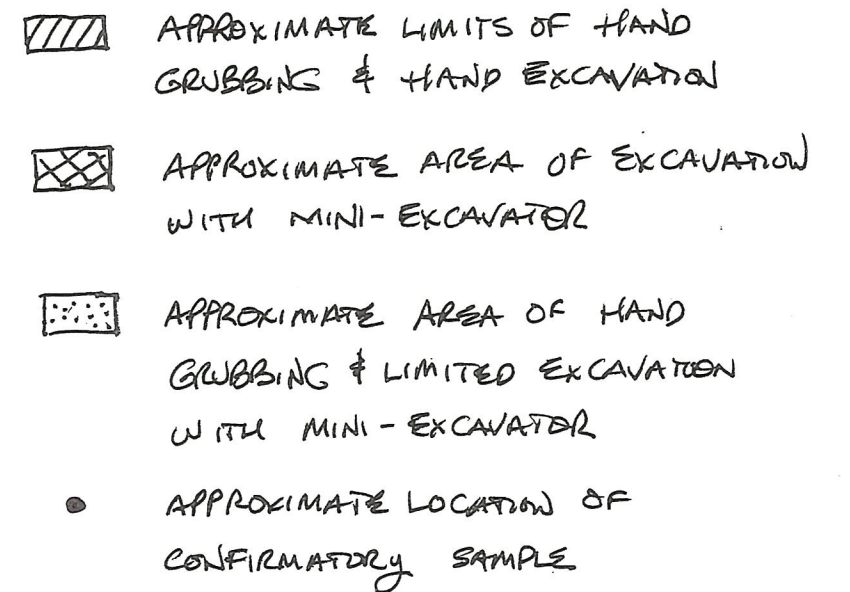 APPROXIMATE LIMITS OF HAND
GRUBBING & HAND EXCAVATION
APPROXIMATE AREA OF EXCAVATION
WITH MINI-EXCAVATOR
APPROXIMATE AREA OF HAND
GRUBBING & LIMITED EXCAVATION
WITH MINI-EXCAVATOR
APPROXIMATE LOCATION OF
CONFIRMATORY SAMPLE